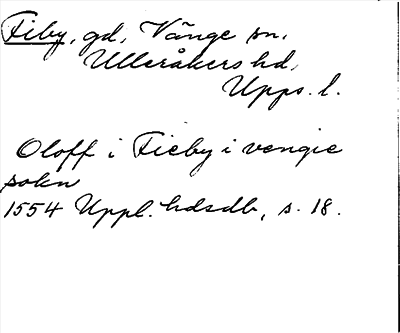 Fiby, gd, Vänge sn,
Ulleråkers hd,
Upps. l.
Oloff i Fieby i vengie
sokn
1554 Uppl. hdsdb, s. 18.